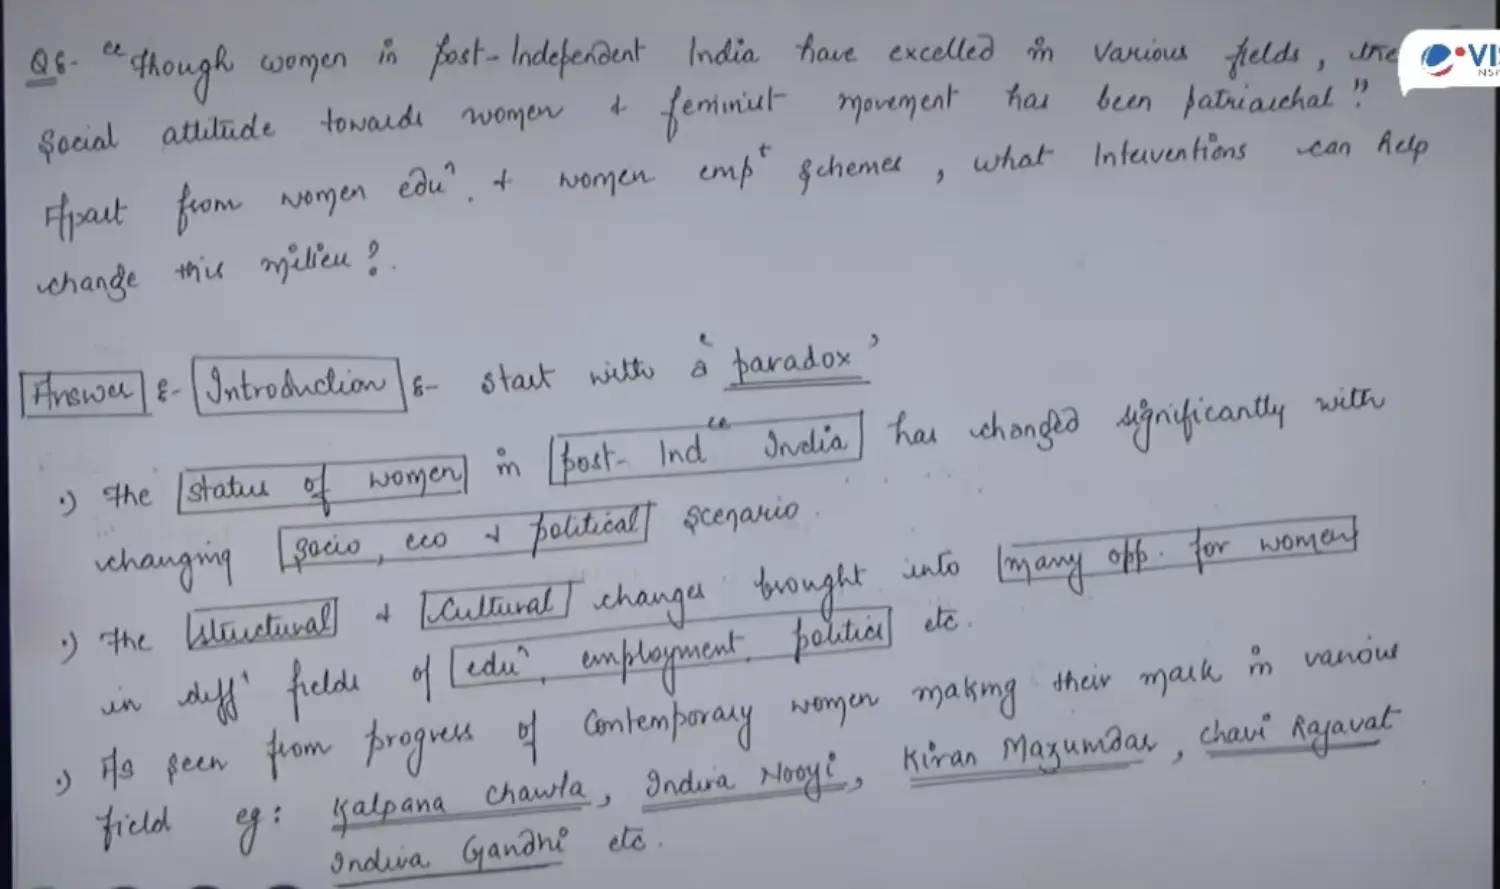 Q8- "Though women in Post-Independent India have excelled in various fields, the
Social attitude towards women & feminist movement has been patriarchal"
Apart from women eduⁿ. & women empᵗ schemes, what Interventions can help
change this milieu?.
VIS
Answer :- Introduction :- start with a 'paradox'
•) The status of women in post-Indᶜᵉ India has changed significantly with
changing socio, eco & political scenario.
•) The structural & cultural changes brought into many opp. for women
in diff' fields of eduⁿ, employment, politics etc.
•) As seen from progress of Contemporary women making their mark in various
field eg: Kalpana Chawla, Indira Nooyi, Kiran Mazumdar, Chavi Rajavat
Indira Gandhi etc.